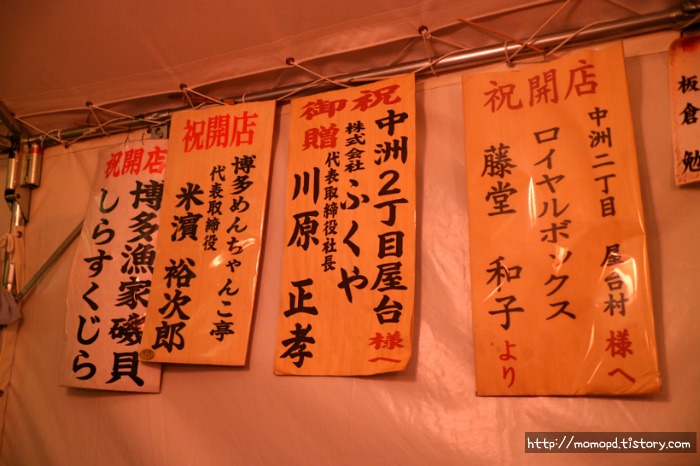 祝開店
博多漁家磯貝
しらすくじら
祝開店
博多めんちゃんこ亭
代表取締役
米濱 裕次郎
祝
御贈
中洲2丁目屋台様へ
株式会社ふくや
代表取締役社長
川原 正孝
祝開店
中洲二丁目 屋台村様へ
ロイヤルボックス
藤堂 和子より
板倉 勉
http://momopd.tistory.com